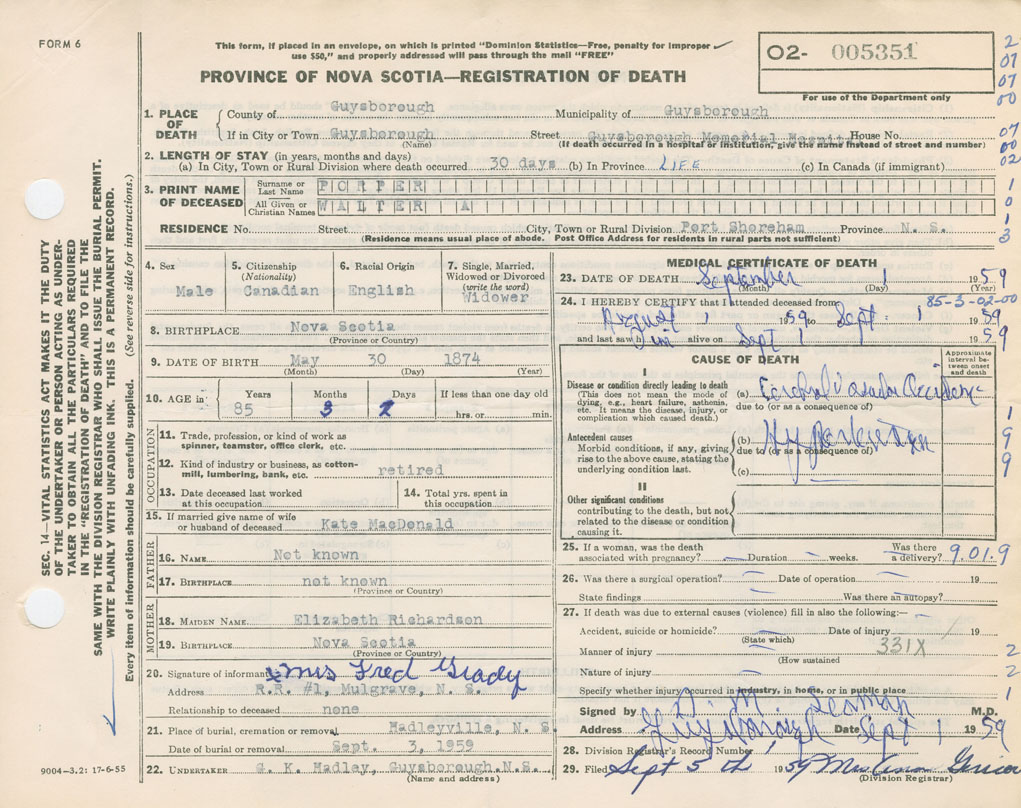 FORM 6
This form, if placed in an envelope, on which is printed "Dominion Statistics—Free, penalty for improper
use $50," and properly addressed will pass through the mail "FREE"
02- 005351
For use of the Department only
PROVINCE OF NOVA SCOTIA—REGISTRATION OF DEATH
2
07
07
00
07
00
02
1
0
1
3
1. PLACE OF DEATH
County of Guysborough Municipality of Guysborough
If in City or Town Guysborough Street Guysborough Memorial House No.
(Name) (If death occurred in a hospital or institution, give the name instead of street and number)
2. LENGTH OF STAY (in years, months and days)
(a) In City, Town or Rural Division where death occurred 30 days (b) In Province LIFE (c) In Canada (if immigrant)
3. PRINT NAME OF DECEASED
Surname or Last Name PORPER
All Given or Christian Names WALTER A
RESIDENCE No. Street City, Town or Rural Division Port Shoreham Province N. S.
(Residence means usual place of abode. Post Office Address for residents in rural parts not sufficient)
4. Sex Male
5. Citizenship (Nationality) Canadian
6. Racial Origin English
7. Single, Married, Widowed or Divorced (write the word) Widower
8. BIRTHPLACE Nova Scotia
(Province or Country)
9. DATE OF BIRTH May 30 1874
(Month) (Day) (Year)
10. AGE in Years 85 Months 3 Days 2 If less than one day old hrs. or min.
OCCUPATION
11. Trade, profession, or kind of work as spinner, teamster, office clerk, etc.
12. Kind of industry or business, as cotton-mill, lumbering, bank, etc. retired
13. Date deceased last worked at this occupation
14. Total yrs. spent in this occupation
15. If married give name of wife or husband of deceased Kate MacDonald
FATHER
16. NAME Not known
17. BIRTHPLACE not known
(Province or Country)
MOTHER
18. MAIDEN NAME Elizabeth Richardson
19. BIRTHPLACE Nova Scotia
(Province or Country)
20. Signature of informant Mrs Fred Grady
Address R.R. #1, Mulgrave, N. S.
Relationship to deceased none
21. Place of burial, cremation or removal Hadleyville, N. S.
Date of burial or removal Sept. 3, 1959
22. UNDERTAKER G. K. Hadley, Guysborough.N.S.
(Name and address)
MEDICAL CERTIFICATE OF DEATH
23. DATE OF DEATH September 1 1959
(Month) (Day) (Year)
85-3-02-00
24. I HEREBY CERTIFY that I attended deceased from
August 1 1959 to Sept 1 1959
and last saw him alive on Sept 1 1959
CAUSE OF DEATH
Approximate interval between onset and death
I
Disease or condition directly leading to death
(This does not mean the mode of dying, e.g., heart failure, asthenia, etc. It means the disease, injury, or complication which caused death.)
(a) Cerebral Vascular Accident
due to (or as a consequence of)
Antecedent causes
Morbid conditions, if any, giving rise to the above cause, stating the underlying condition last.
(b) Hypertension
due to (or as a consequence of)
(c)
II
Other significant conditions
contributing to the death, but not related to the disease or condition causing it.
1
9
9
25. If a woman, was the death associated with pregnancy? — Duration — weeks. Was there a delivery? —
9.01.9
26. Was there a surgical operation? — Date of operation — 19
State findings Was there an autopsy? —
27. If death was due to external causes (violence) fill in also the following:—
Accident, suicide or homicide? — Date of injury 19
(State which)
331X
Manner of injury —
(How sustained
Nature of injury —
Specify whether injury occurred in industry, in home, or in public place
2
2
1
Signed by D. M. Seaman M.D.
Address Guysborough Date Sept 1 1959
28. Division Registrar's Record Number
29. Filed Sept 5th 1959 Mrs
(Division Registrar)
SEC. 14—VITAL STATISTICS ACT MAKES IT THE DUTY
OF THE UNDERTAKER OR PERSON ACTING AS UNDER-
TAKER TO OBTAIN ALL THE PARTICULARS REQUIRED
IN THE "REGISTRATION OF DEATH" AND TO FILE THE
SAME WITH THE DIVISION REGISTRAR WHO SHALL ISSUE THE BURIAL PERMIT.
WRITE PLAINLY WITH UNFADING INK. THIS IS A PERMANENT RECORD.
Every item of information should be carefully supplied. (See reverse side for instructions.)
9004-3.2: 17-6-55